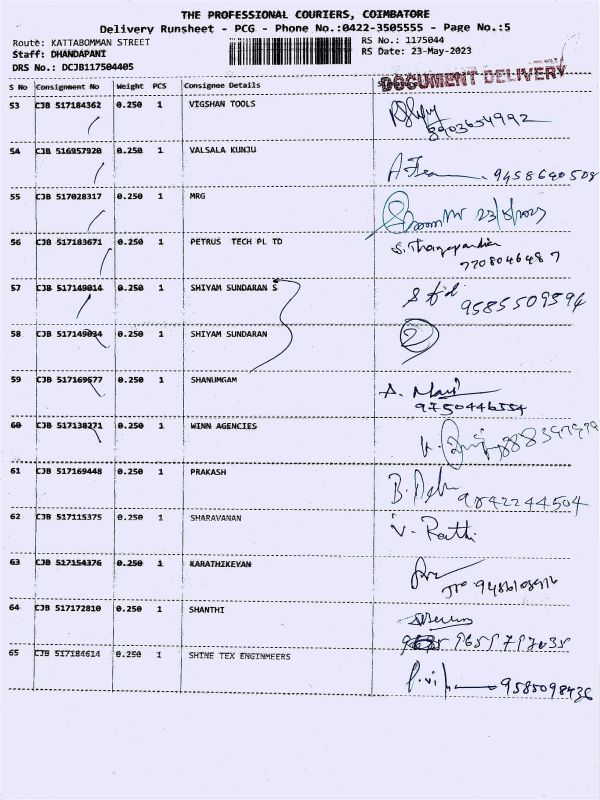 THE PROFESSIONAL COURIERS, COIMBATORE
Delivery Runsheet - PCG - Phone No.:0422-3505555 - Page No.:5
Route: KATTABOMMAN STREET
Staff: DHANDAPANI
DRS No.: DCJB117504405
RS No.: 1175044
RS Date: 23-May-2023
S No Consignment No Weight PCS Consignee Details
DOCUMENT DELIVERY
53 CJB 517184362 0.250 1 VIGSHAN TOOLS
8903654992
54 CJB 516957920 0.250 1 VALSALA KUNJU
55 CJB 517028317 0.250 1 MRG
23/5/2023
56 CJB 517183671 0.250 1 PETRUS TECH PL TD
S. Thangapandian
7708046487
57 CJB 517149014 0.250 1 SHIYAM SUNDARAN S
9585509594
58 CJB 517149034 0.250 1 SHIYAM SUNDARAN
2
59 CJB 517169577 0.250 1 SHANUMGAM
A. Mani
9750446554
60 CJB 517138271 0.250 1 WINN AGENCIES
61 CJB 517169448 0.250 1 PRAKASH
9842244504
62 CJB 517115375 0.250 1 SHARAVANAN
V. Rathi
63 CJB 517154376 0.250 1 KARATHIKEYAN
64 CJB 517172810 0.250 1 SHANTHI
65 CJB 517184614 0.250 1 SHINE TEX ENGINMEERS
9585098436